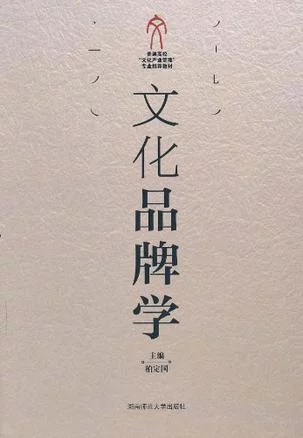 普通高校
"文化产业管理"
专业推荐教材
文化品牌学
主编
柏定国
湖南师范大学出版社